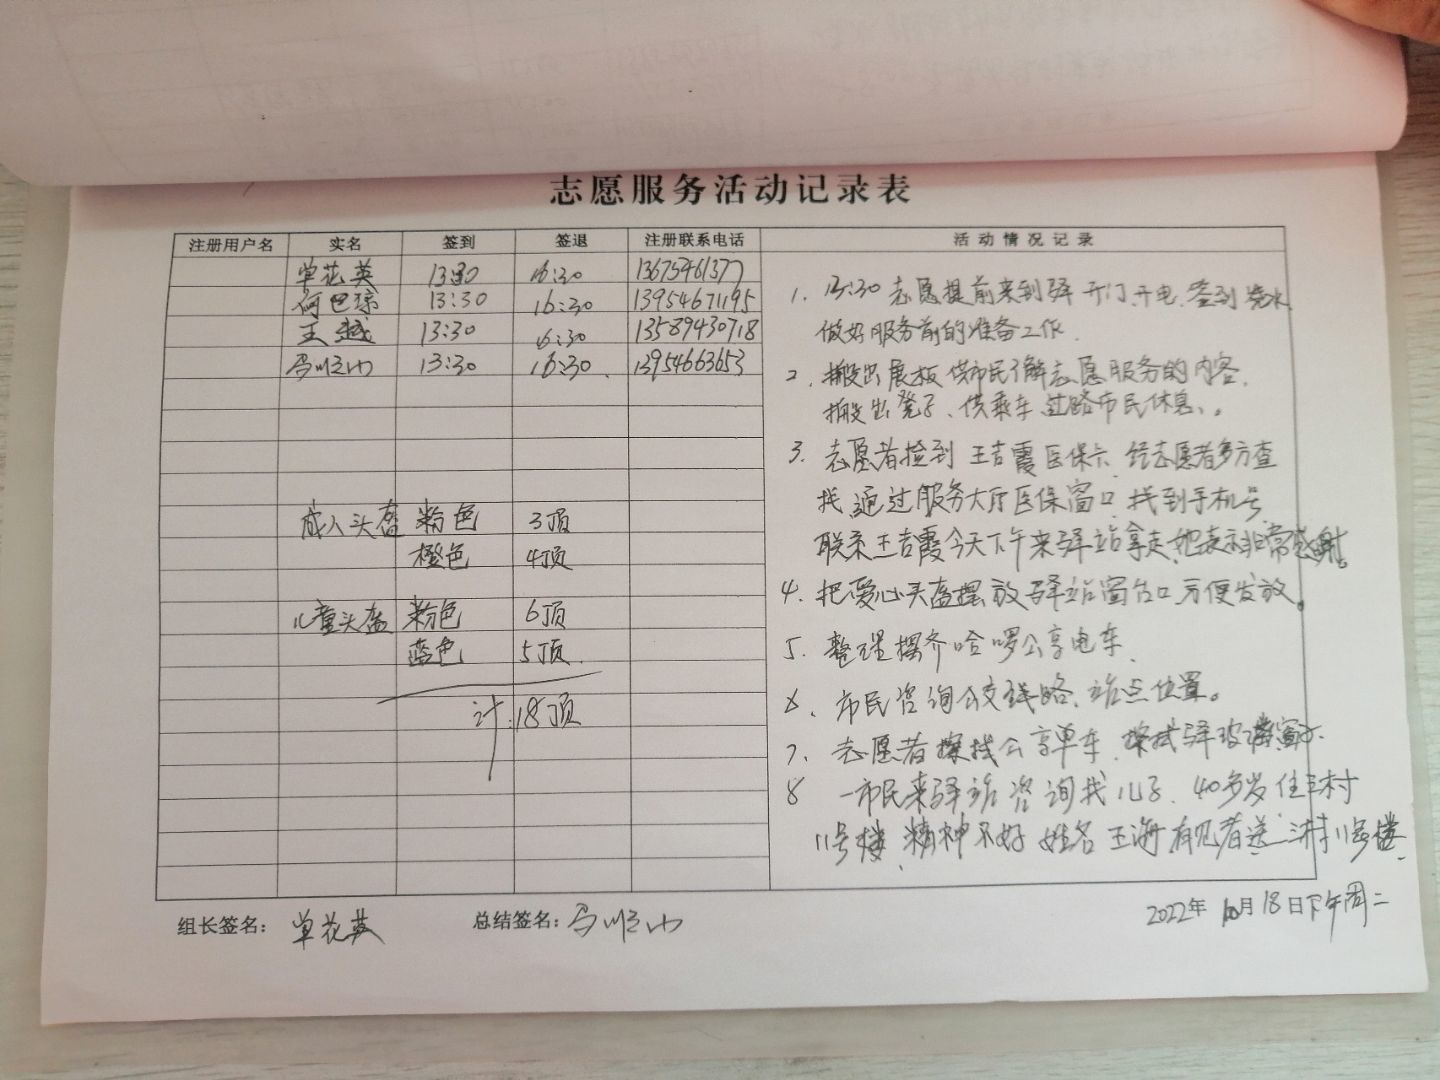 志愿服务活动记录表
注册用户名 实名 签到 签退 注册联系电话 活动情况记录
单花英 13:30 16:30 13675461377
何巴琼 13:30 16:30 13954671195
王越 13:30 16:30 13589430718
13:30 16:30 13954663653
成人头盔 粉色 3顶
橙色 4顶
儿童头盔 粉色 6顶
蓝色 5顶
计:18顶
1. 13:30志愿提前来到驿开门、开电、签到、烧水
做好服务前的准备工作.
2. 搬出展板供市民了解志愿服务的内容.
搬出凳子、供乘车、过路市民休息。
3. 志愿者捡到王吉霞医保卡、经志愿者多方查
找通过服务大厅医保窗口、找到手机号
联系王吉霞今天下午来驿站拿走、她表示非常感谢。
4. 把爱心头盔摆放驿站窗台口方便发放。
5. 整理摆齐哈啰公享电车、
6. 市民咨询公交线路、站点位置。
7. 志愿者擦拭公享单车、擦拭驿玻璃窗子.
8 一市民来驿站咨询找儿子、40多岁住三村
11号楼、精神不好 姓名王海 有见者送三村11号楼、
组长签名: 单花英 总结签名:
2022年10月18日下午周二